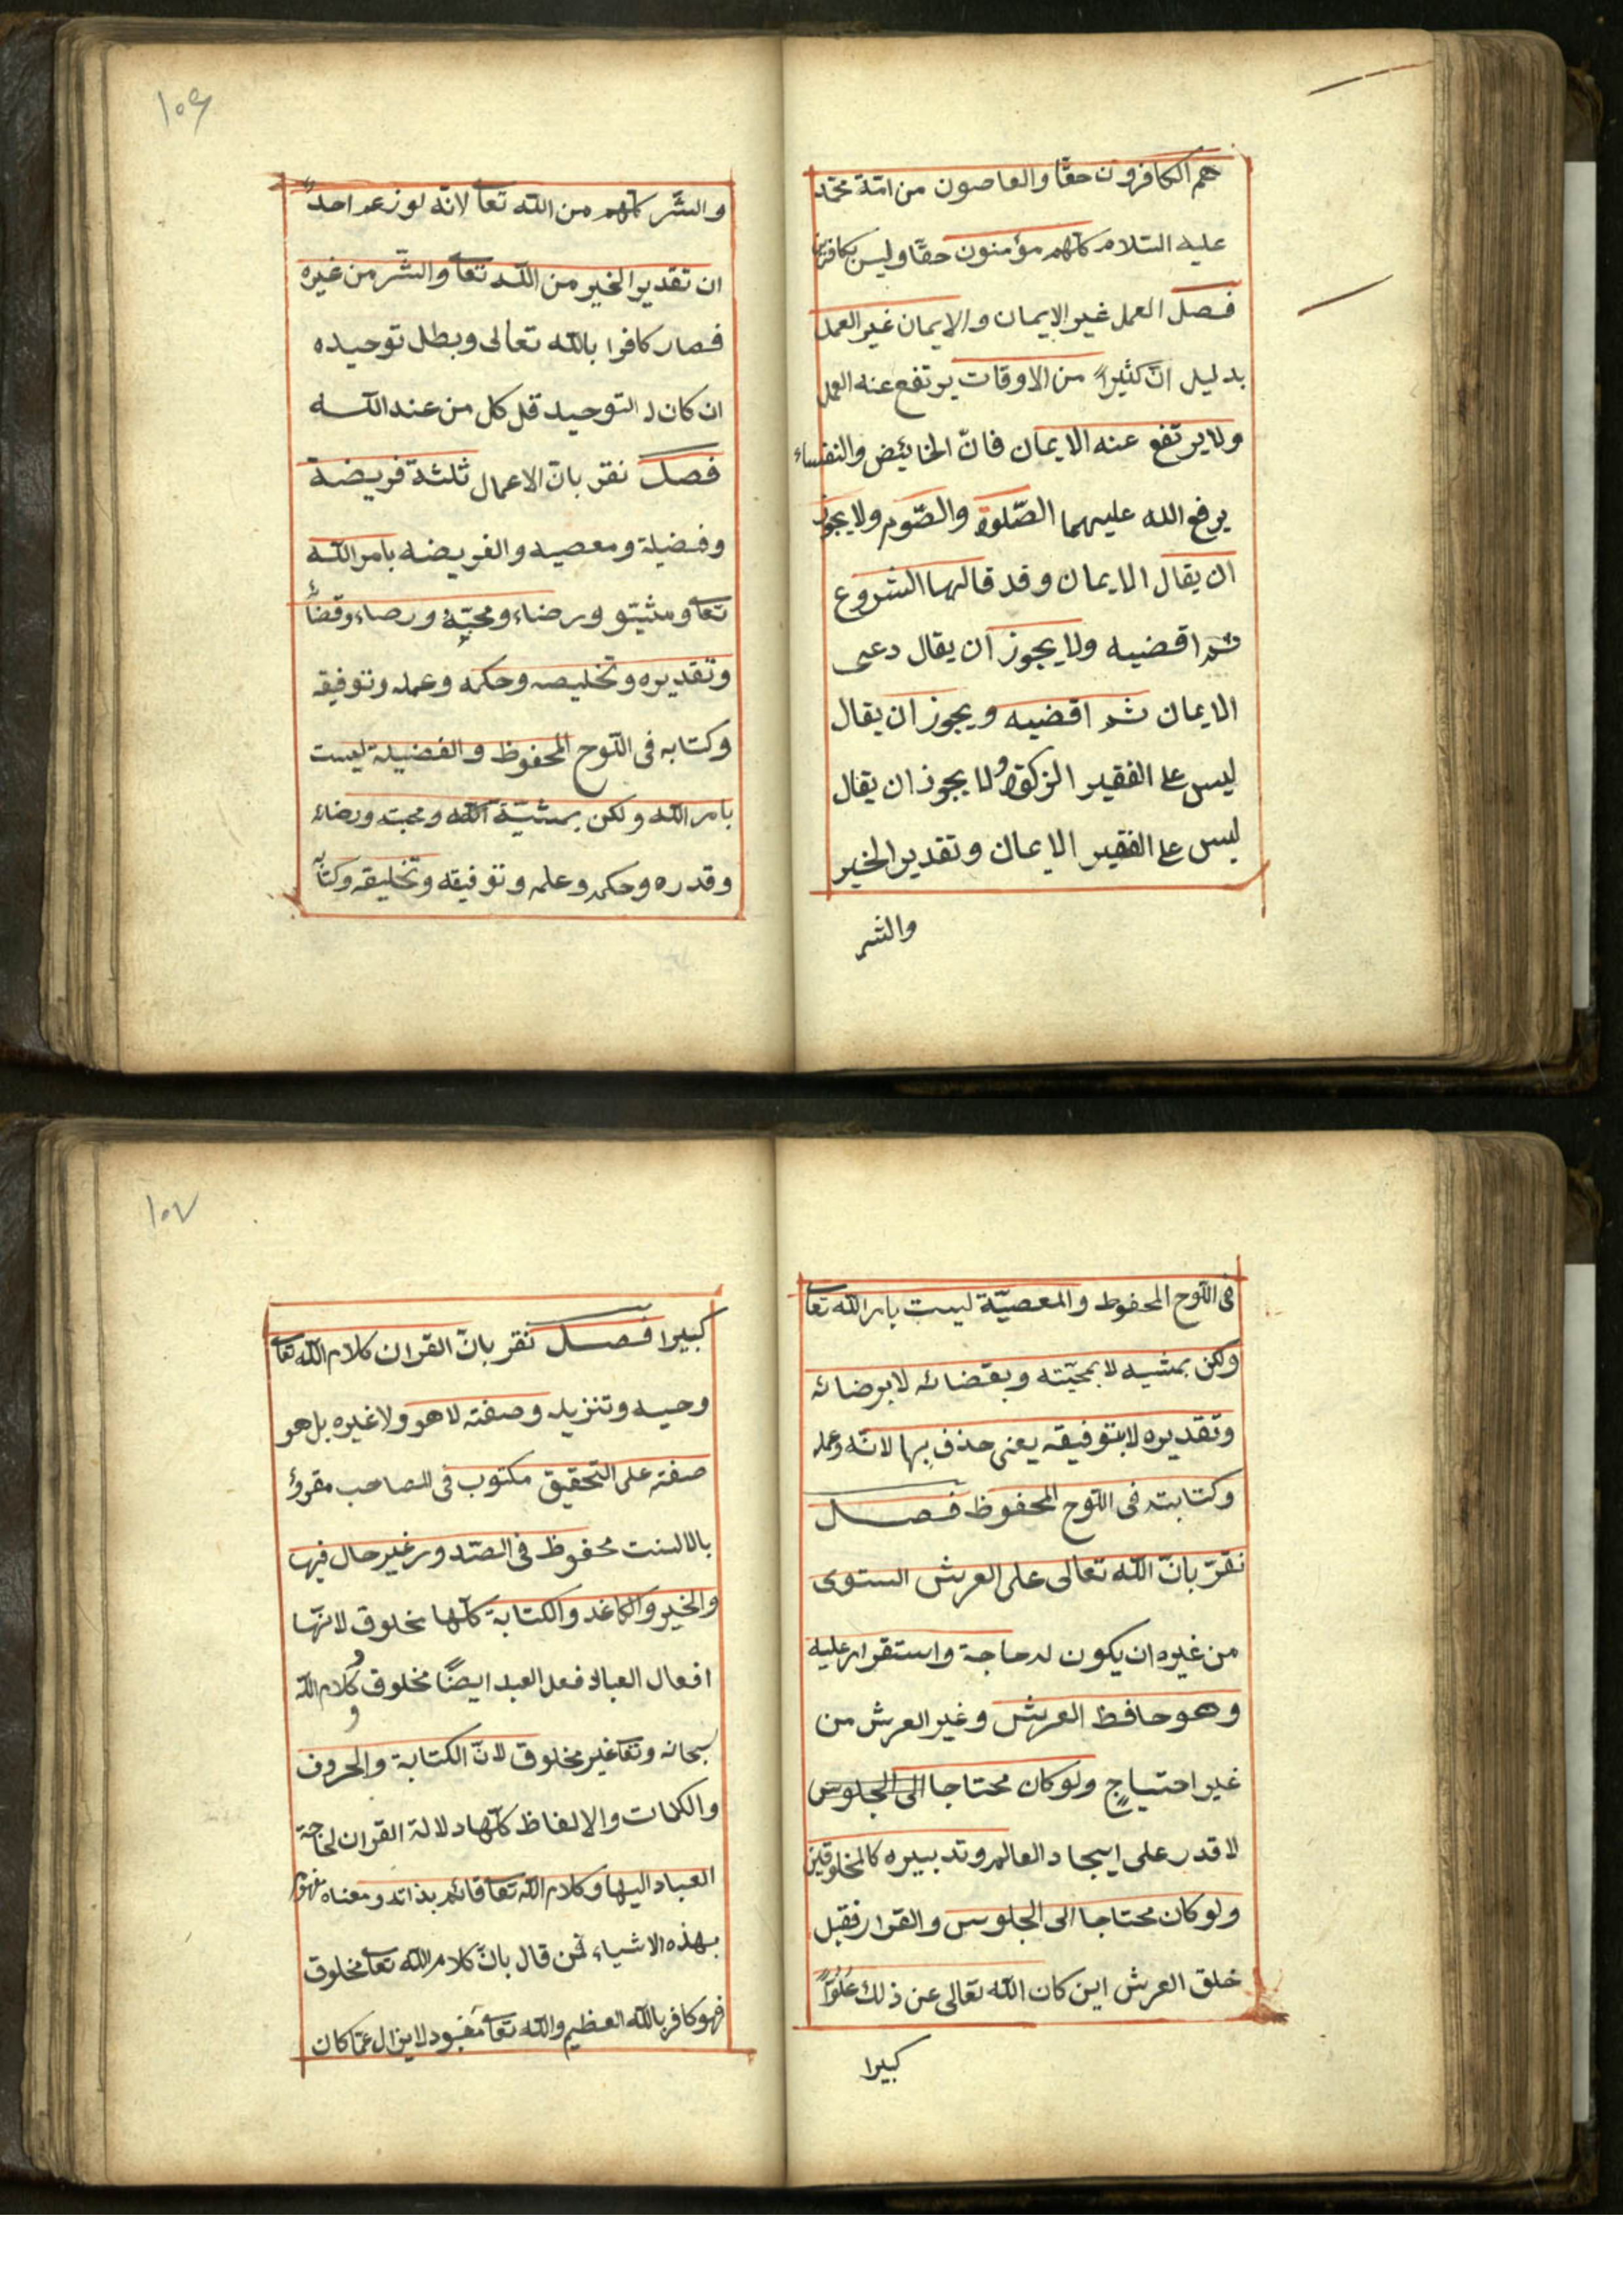 هم الكافرون حقًّا والعاصون من امّة محمّد
عليه السّلام كلّهم مؤمنون حقًّا وليس بكافرين
فصل العمل غير الايمان والايمان غير العمل
بدليل انّ كثيراً من الاوقات يرتفع عنه العمل
ولا يرتفع عنه الايمان فانّ الحائيض والنفساء
يرفع الله عليهما الصّلوة والصّوم ولا يجوز
ان يقال الايمان وقد قال لها الشروع
ثم اقضيه ولا يجوز ان يقال دعى
الايمان ثم اقضيه ويجوز ان يقال
ليس على الفقير الزكوة ولا يجوز ان يقال
ليس على الفقير الايمان وتقدير الخير
والشر
١٠٦
والشّر كلّهم من الله تعا لانّه لو زعم احدٌ
ان تقدير الخير من الله تعا والشّر من غيره
فصار كافرا بالله تعالى وبطل توحيده
ان كان له التوحيد قل كل من عند الله
فصل نقر بانّ الاعمال ثلثة فريضة
وفضيلة ومعصيه والفريضه بامر الله
تعا ومشيتو ورضاء ومحبّة ورضاء وقضائ
وتقديره وتخليصه وحكمه وعمله وتوفيقه
وكتابه فى اللّوح المحفوظ والفضيلة ليست
بامر الله ولكن بمشيّة الله ومحبته ورضائه
وقدره وحكمه وعلمه وتوفيقه وتخليقه وكتابه
فى اللّوح المحفوظ والمعصيّة ليست بامر الله تعا
ولكن بمشيه لا بمحبّته وبقضائه لا برضائه
وتقديره لا بتوفيقه يعنى حذف بها لانّه وعمله
وكتابته فى اللّوح المحفوظ فصل
نقرّ بانّ الله تعالى على العرش الستوى
من غيره ان يكون له حاجة واستقرار عليه
وهو حافظ العرش وغير العرش من
غير احتياجٍ ولو كان محتاجا الى الجلوس
لا قدر على ايجاد العالم وتدبيره كالمخلوقين
ولو كان محتاجا الى الجلوس والقرار فقبل
خلق العرش اين كان الله تعالى عن ذلك علوّاً
كبيرا
١٠٧
كبيرا فصل نقر بانّ القران كلام الله تعا
وحيه وتنزيله وصفته لا هو ولا غيره بل هو
صفته على التحقيق مكتوب فى المصاحب مقروٌ
بالالسنت محفوظ فى الصّدور غير حال فيها
والخير والكاغد والكتابة كلّها مخلوق لانّها
افعال العباد فعل العبد ايضًا مخلوق وكلام الله
سبحانه وتعا غير مخلوق لانّ الكتابة والحروف
والكلمات والالفاظ كلّها دلالة القران لحاجة
العباد اليها وكلام الله تعا قائم بذاته ومعناه مفهوم
بهذه الاشياء فمن قال بانّ كلام الله تعا مخلوق
فهو كافر بالله العظيم والله تعا مَعْبود لا يزال عمّا كان